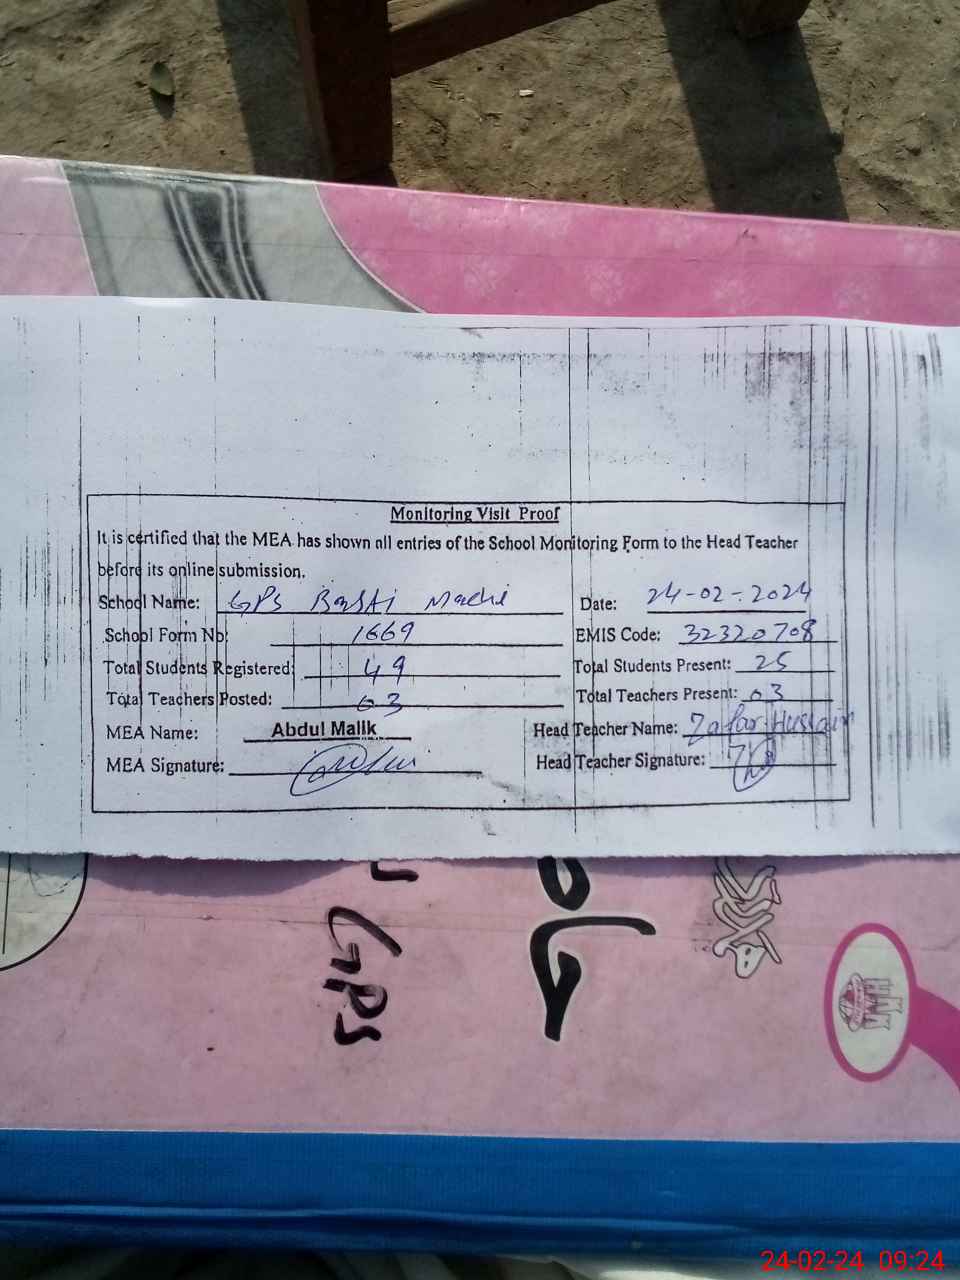 Monitoring Visit Proof
It is certified that the MEA has shown all entries of the School Monitoring Form to the Head Teacher
before its online submission.
School Name: GPS Basti Machi Date: 24-02-2024
School Form No: 1669 EMIS Code: 32320708
Total Students Registered: 49 Total Students Present: 25
Total Teachers Posted: 03 Total Teachers Present: 03
MEA Name: Abdul Malik Head Teacher Name: Zafar Hussain
MEA Signature: Head Teacher Signature:
GPS
24-02-24 09:24